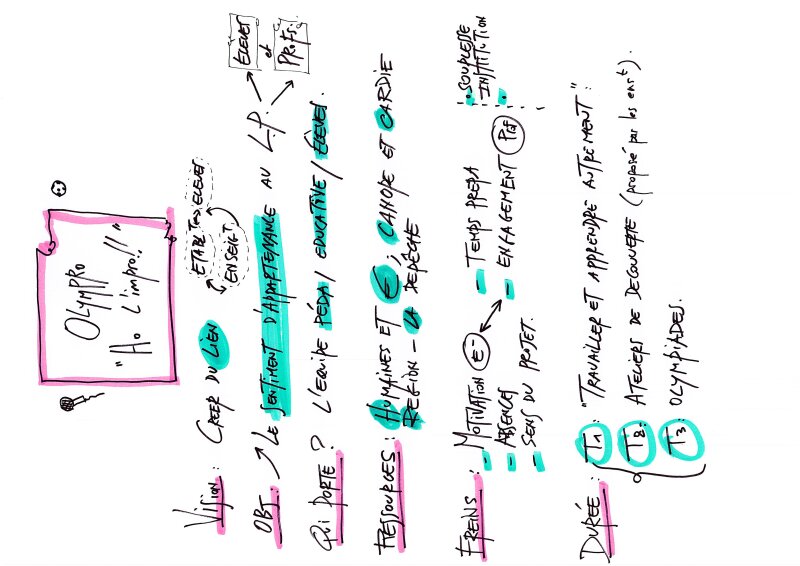 OLYMPRO
"Ho L'impro!!"
Vision: CRÉER DU LIEN
ETABLT
ELEVES
ENSEIGT
OBJ: LE SENTIMENT D'APPARTENANCE AU L.P.
ELEVES
et
PROFS.
Qui PORTE? L'EQUIPE PÉDA/ EDUCATIVE/ ÉLEVES.
RESSOURCES: HUMAINES ET €; CANOPE ET CARDIE
REGION - LA DEPÊCHE
FREINS: MOTIVATION E-
- ABSENCES
- SENS DU PROJET.
- TEMPS PREPA
- ENGAGEMENT Prof
SOUPLESSE
INSTITUTION
DURÉE: T1: "TRAVAILLER ET APPRENDRE AUTREMENT"
T2: ATELIERS DE DECOUVERTE (proposé par les enst)
T3: OLYMPIADES.